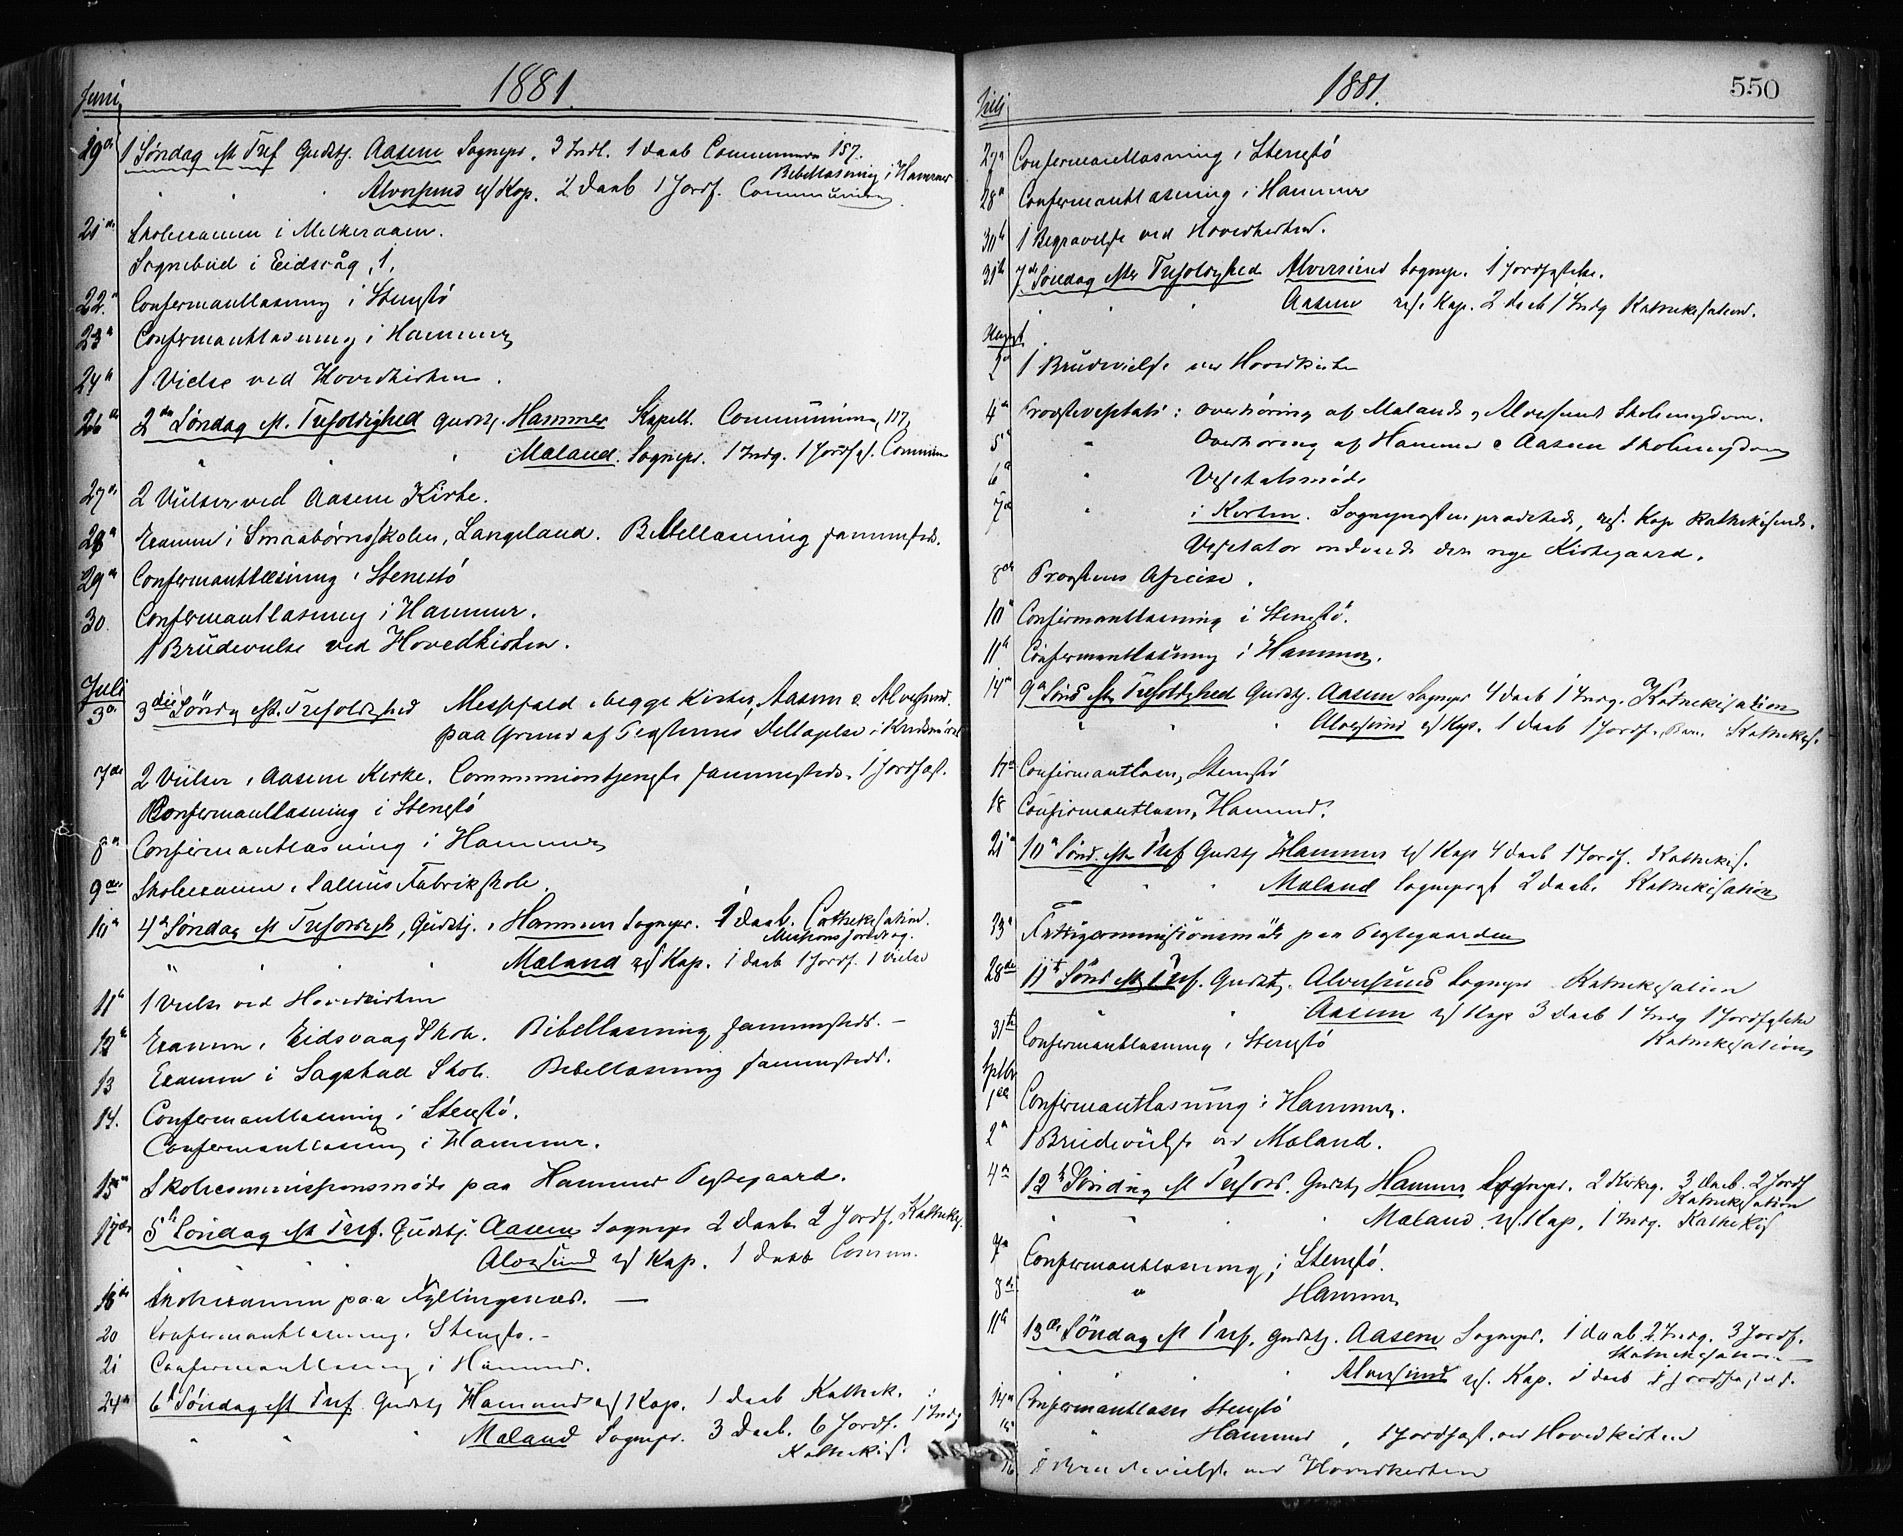 Juni
1881.
29de 1 Søndag eft Tref Gudstj. Aasene Sognepr. 3 Indl. 1 Daab Communion 157.
Bibellæsning i Hammer
Alversund res Kap. 2 Daab 1 Jordf. Communion
21de Skoleexamen i Melkeraaen.
Sognebud i Eidsvåg, 1.
22. Confirmantlæsning i Stenstö
23 Confirmantlæsning i Hammer
24 1 Vielse ved Hovedkirken.
26de 2den Søndag eft. Trefoldighed Gudstj. Hammer Kapell. Communion 117.
Mæland. Sognepr. 1 Indg. 1 Jordfst. Commun
27de 2 Vielser ved Aasene Kirke.
28 Examen i Smaabørnsskolen, Langeland. Bibellæsning sammesteds.
29de Confirmantlæsning i Stenstö
30. Confirmantlæsning i Hammer.
1 Brudevielse ved Hovedkirken.
Juli
3 3die Sønd eft. Trefoldighed Messefald i begge Kirker, Aasene & Alversund
paa Grund af Presternes Deltagelse i
7de 2 Vielser i Aasene Kirke. Communiontjeneste sammesteds. 1 Jordfæst.
Confirmantlæsning i Stenstö
8 Confirmantlæsning i Hammer
9de Skoleexamen i Salhus Fabrikskole.
10 4 Søndag eft Trefoldigh, Gudstj. i Hammer Sognepr. 1 Daab. Cathekisation.
Missionsforedrag.
Mæland res Kap. 1 Daab 1 Jordf. 1 Vielse
11 1 Vielse ved Hovedkirken
12 Examen i Eidsvaag Skole. Bibellæsning sammesteds. —
13 Examen i Sagstad Skole. Bibellæsning sammesteds.
14. Confirmantlæsning i Stenstö.
Confirmantlæsning i Hammer.
15 Skolecommissionsmøde paa Hammer Prestegaard.
17de 5te Søndag eft Tref. Gudstj. Aasene Sognepr 2 Daab 2 Jordf. Kathekis.
Alversund res Kap. 1 Daab Comm.
18de Skoleexamen paa Kyllingsnæs. —
20 Confirmantlæsning i Stenstö. -
21 Confirmantlæsning i Hammer.
24 6te Søndag eft Tref Gudstj Hammer res Kap. 1 Daab Kathek.
Mæland Sognepr. 3 Daab. 6 Jordf. 1 Indg
Kathekis.
Juli
1881.
550
27 Confirmantlæsning i Stenstö
28 Confirmantlæsning i Hammer
30 1 Begravelse ved Hovedkirken.
31te 7de Søndag efter Trefoldighed Alversund Sognep. 1 Jordfæstelse.
Aasene res. Kap. 2 Daab 1 Indg Kathekisation.
August
2 1 Brudevielse ved Hovedkirken
4 Provstevisitats: Overhøring af Mælands & Alversunds Skoleungdom.
5 " Overhøring af Hammer & Aasene Skoleungdom
6 " Visitatsmøde
7 " i Kirken. Sognepresten prædikede, res. Kap kathekiserede.
Visitator indviede den nye Kirkegaard.
8de Provstens Afreise.
10 Confirmantlæsning i Stenstö.
11 Confirmantlæsning i Hammer.
14 9 Sønd eft Trefoldighed Gudstj. Aasene Sognepr 4 Daab 1 Indg. Kathekisation
Alversund res Kap. 1 Daab 1 Jordf. Kathekis.
17 Confirmantlæsn, Stenstö
18 Confirmantlæsn, Hammer.
21 10 Sønd. eft Tref Gudstj Hammer res Kap 4 Daab 1 Jordf. Kathekis.
Mæland Sogneprest 2 Daab. Kathekisation
23 Fattigcommissionsmøde paa Prestegaarden
28de 11te Sønd eft Tref. Gudstj. Alversund Sognepr Kathekisation
Aasene res Kap 3 Daab 1 Indg 1 Jordfæstelse
Kathekisation
31te Confirmantlæsning i Stenstö
Sptbr
1 Confirmantlæsning i Hammer.
2 1 Brudevielse ved Mæland.
4 12te Søndag eft Trefold. Gudstj Hammer Sognepr. 2 Kirkeg. 3 Daab. 2 Jordf
Kathekisation
Mæland res. Kap. 1 Indg. Kathekis
7 Confirmantlæsning i Stenstö.
8de " Hammer
11 13de Søndag eft Tref. Gudstj. Aasene Sognepr. 1 Daab 2 Indg. 3 Jordf.
Kathekisation
Alversund res. Kap. 1 Daab 1 Jordfæstels.
14 Confirmantlæsn Stenstö
15 Hammer, 1 Jordfæst. ved Hovedkirken
16 Brudevielse ved Hovedkirken